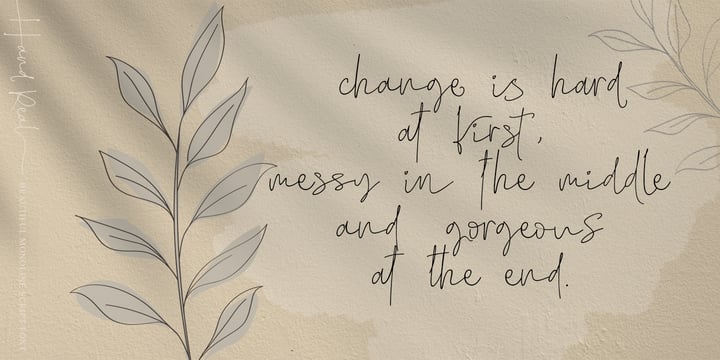 change is hard
at first,
messy in the middle
and gorgeous
at the end.
Hand Real
BEAUTIFUL MONOLINE SCRIPT FONT